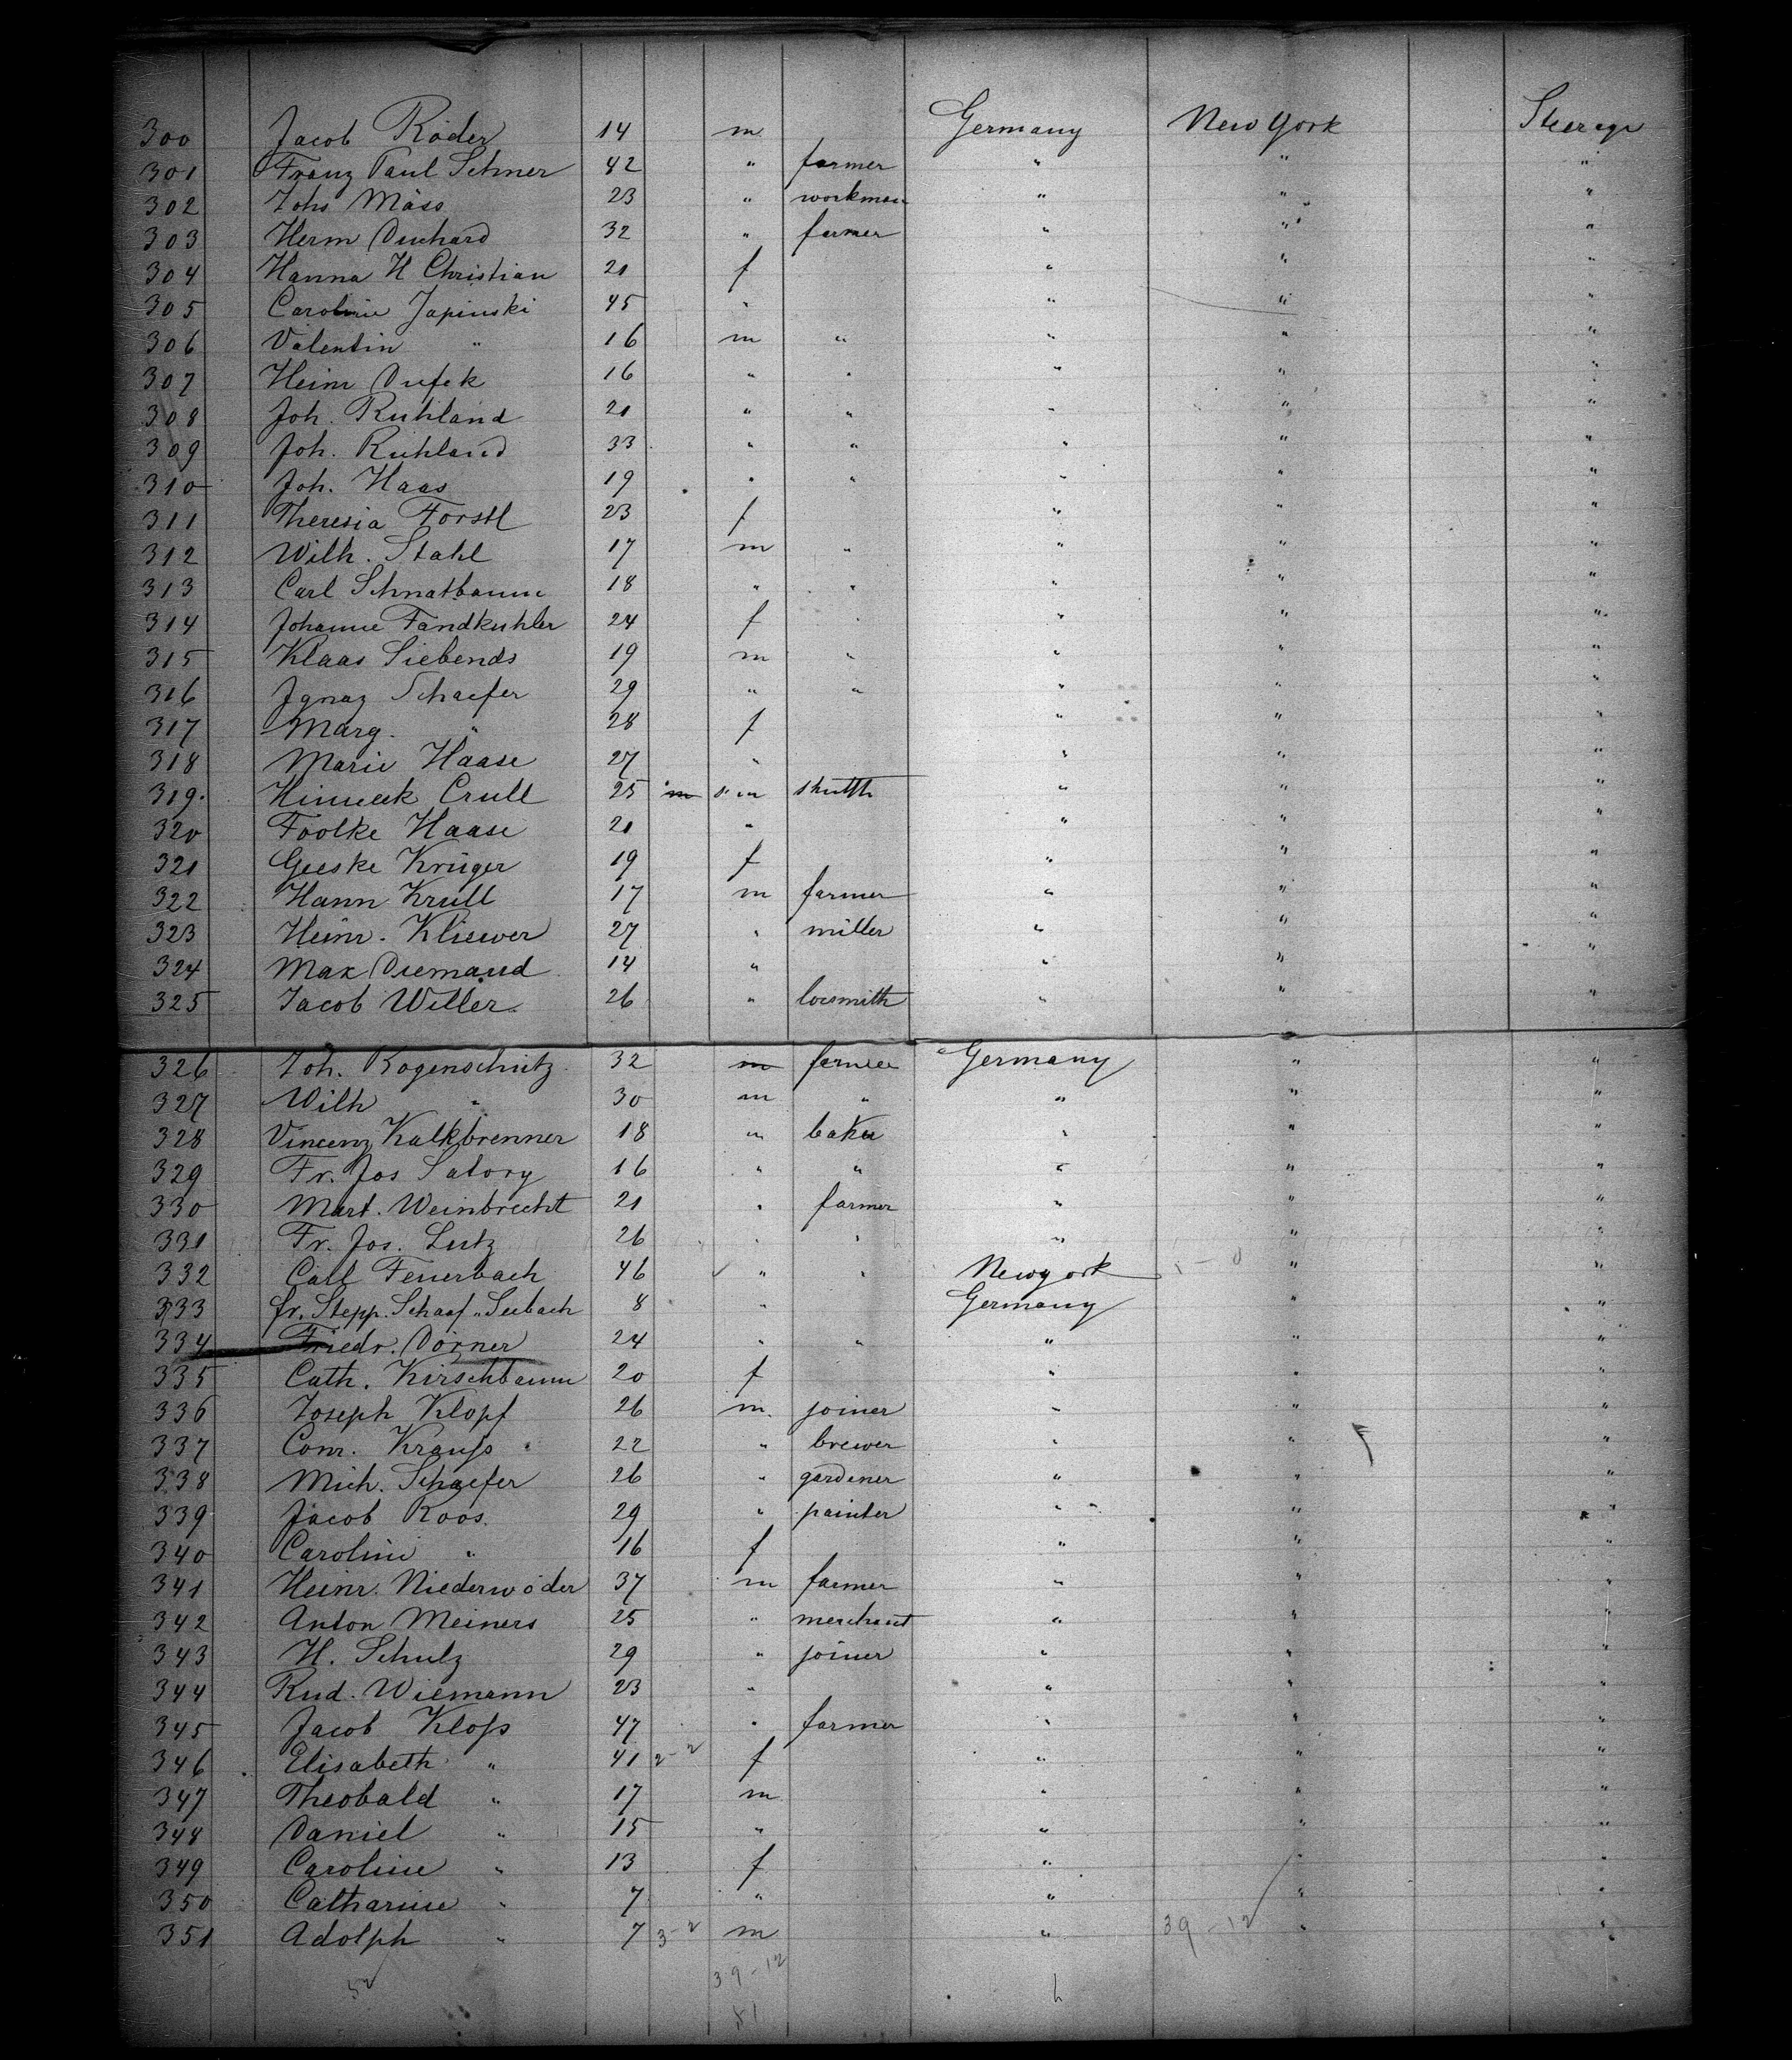 300 Jacob Röder 14 m Germany New York Steerage
301 Franz Paul Schner 42 " farmer " " "
302 Johs Mäss 23 " workman " " "
303 Herm Duchard 32 " farmer " " "
304 Hanna H Christian 21 f " " "
305 Caroline Japinski 45 " " " "
306 Valentin " 16 m " " " "
307 Heinr Dufek 16 " " " " "
308 Joh. Ruhland 21 " " " " "
309 Joh. Ruhland 33 " " " " "
310 Joh. Haas 19 " " " " "
311 Theresia Forstl 23 f " " "
312 Wilh. Stahl 17 m " " " "
313 Carl Schnatbaum 18 " " " " "
314 Johanne Fandkuhler 24 f " " " "
315 Klaas Siebends 19 m " " " "
316 Ignaz Schaefer 29 " " " " "
317 Marg. " 28 f " " "
318 Marie Haase 27 " " " "
319 Crull 25 m m " " "
320 Foolke Haase 21 " " " "
321 Geeske Krüger 19 f " " "
322 Hann Krull 17 m farmer " " "
323 Heinr. Kliewer 27 " miller " " "
324 Max Diemand 14 " " " "
325 Jacob Willer 26 " locsmith " " "
326 Joh. Rogenschütz 32 m farmer Germany " "
327 Wilh " 30 m " " " "
328 Vincenz Kalkbrenner 18 " baker " " "
329 Fr. Jos Satory 16 " " " " "
330 Mart. Weinbrecht 21 " farmer " " "
331 Fr. Jos. Lutz 26 " " " " "
332 Carl Feuerbach 46 " " Newyork " "
333 fr. Stepp. Schaaf " Seebach 8 " Germany " "
334 Friedr. Dörner 24 " " " " "
335 Cath. Kirschbaum 20 f " " "
336 Joseph Klopf 26 m joiner " " "
337 Conr. Krauss 22 " brewer " " "
338 Mich. Schaefer 26 " gardener " " "
339 Jacob Roos. 29 " painter " " "
340 Caroline " 16 f " " "
341 Heinr. Niederwöder 37 m farmer " " "
342 Anton Meiners 25 " merchant " " "
343 H. Schulz 29 " joiner " " "
344 Rud. Wiemann 23 " " " "
345 Jacob Kloss 47 " farmer " " "
346 Elisabeth " 41 2-2 f " " "
347 Theobald " 17 m " " "
348 Daniel " 15 " " " "
349 Caroline " 13 f " " "
350 Catharine " 7 " " " "
351 Adolph " 7 3-2 m " 39-12 " "
52 39-12
51